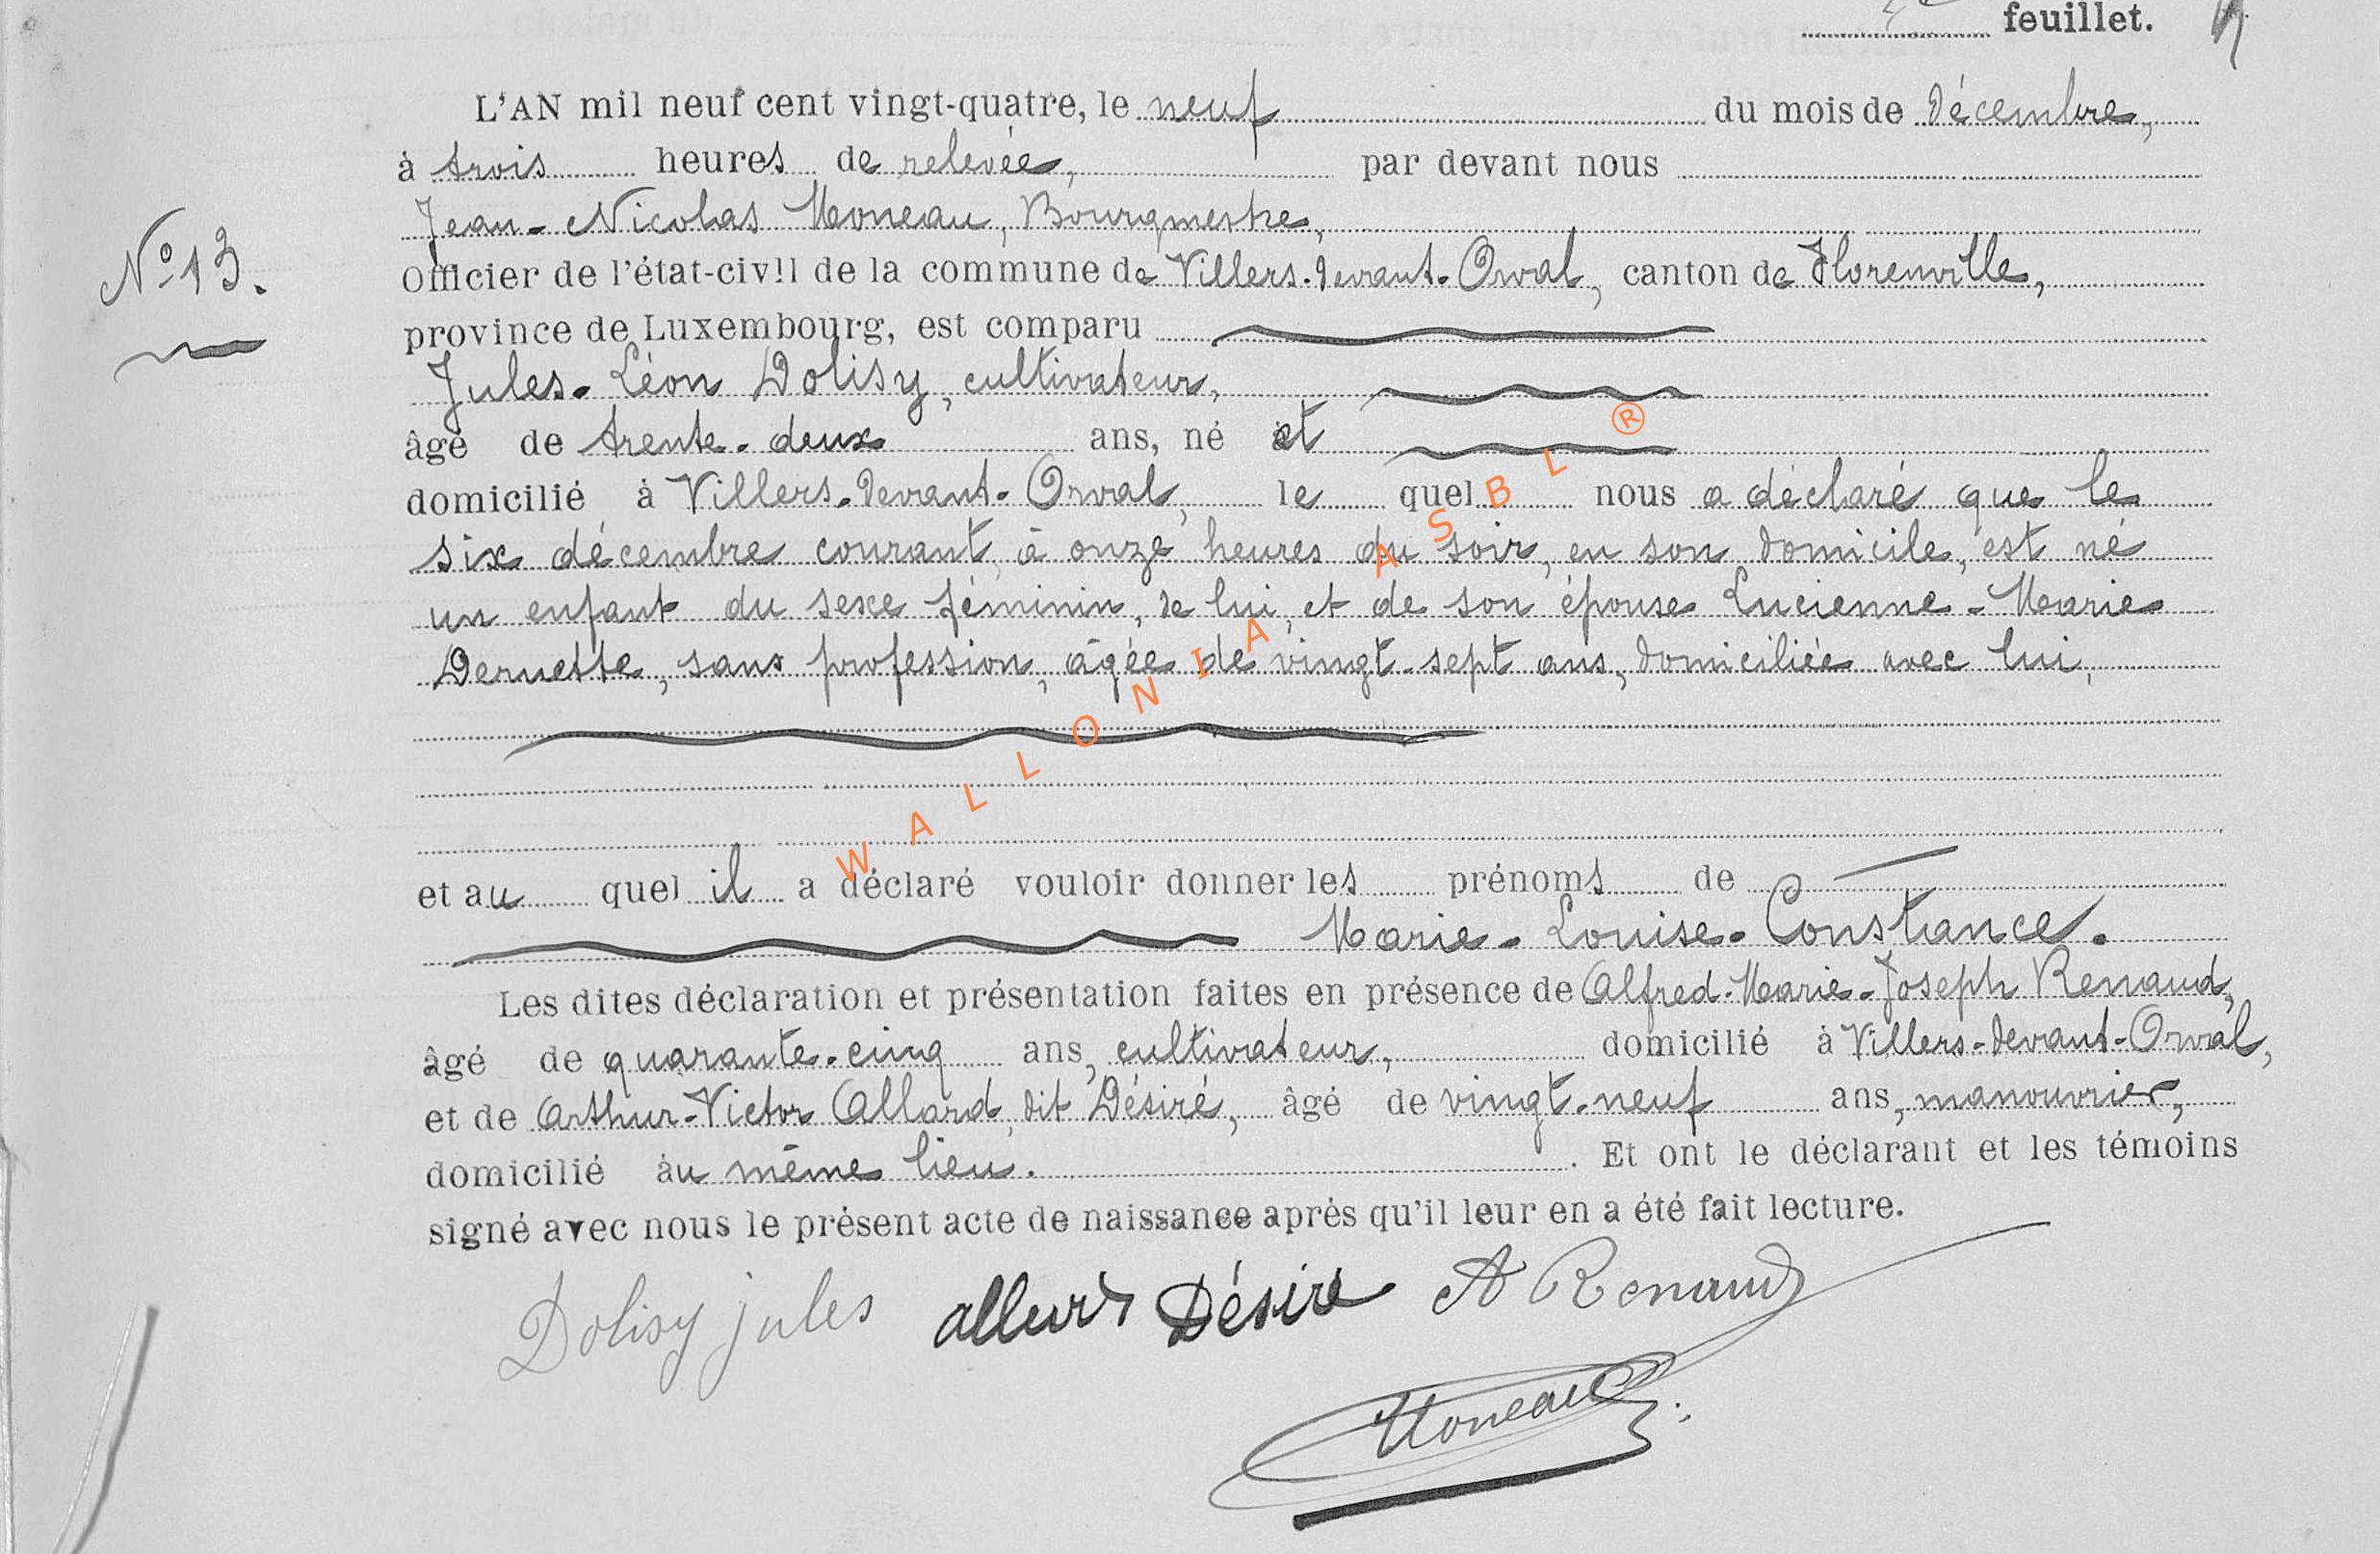 feuillet.
L'AN mil neuf cent vingt-quatre, le neuf du mois de Décembre,
à trois heures de relevée, par devant nous
Jean-Nicolas Moneau, Bourgmestre,
N° 13.
Officier de l'état-civil de la commune de Villers-devant-Orval, canton de Florenville,
province de Luxembourg, est comparu
Jules-Léon Dolisy, cultivateur,
âgé de trente-deux ans, né et
domicilié à Villers-devant-Orval, le quel nous a déclaré que le
six décembre courant, à onze heures du soir, en son domicile, est né
un enfant du sexe féminin, de lui, et de son épouse Lucienne-Marie
Dernette, sans profession, âgée de vingt-sept ans, domiciliée avec lui,
WALLONIA ASBL ®
et au quel il a déclaré vouloir donner les prénoms de
Marie-Louise-Constance.
Les dites déclaration et présentation faites en présence de Alfred-Marie-Joseph Renaud,
âgé de quarante-cinq ans, cultivateur, domicilié à Villers-devant-Orval,
et de Arthur-Victor Allard, dit Désiré, âgé de vingt-neuf ans, manouvrier,
domicilié au même lieu. . Et ont le déclarant et les témoins
signé avec nous le présent acte de naissance après qu'il leur en a été fait lecture.
Dolisy jules Désiré A Renaud
Moneau